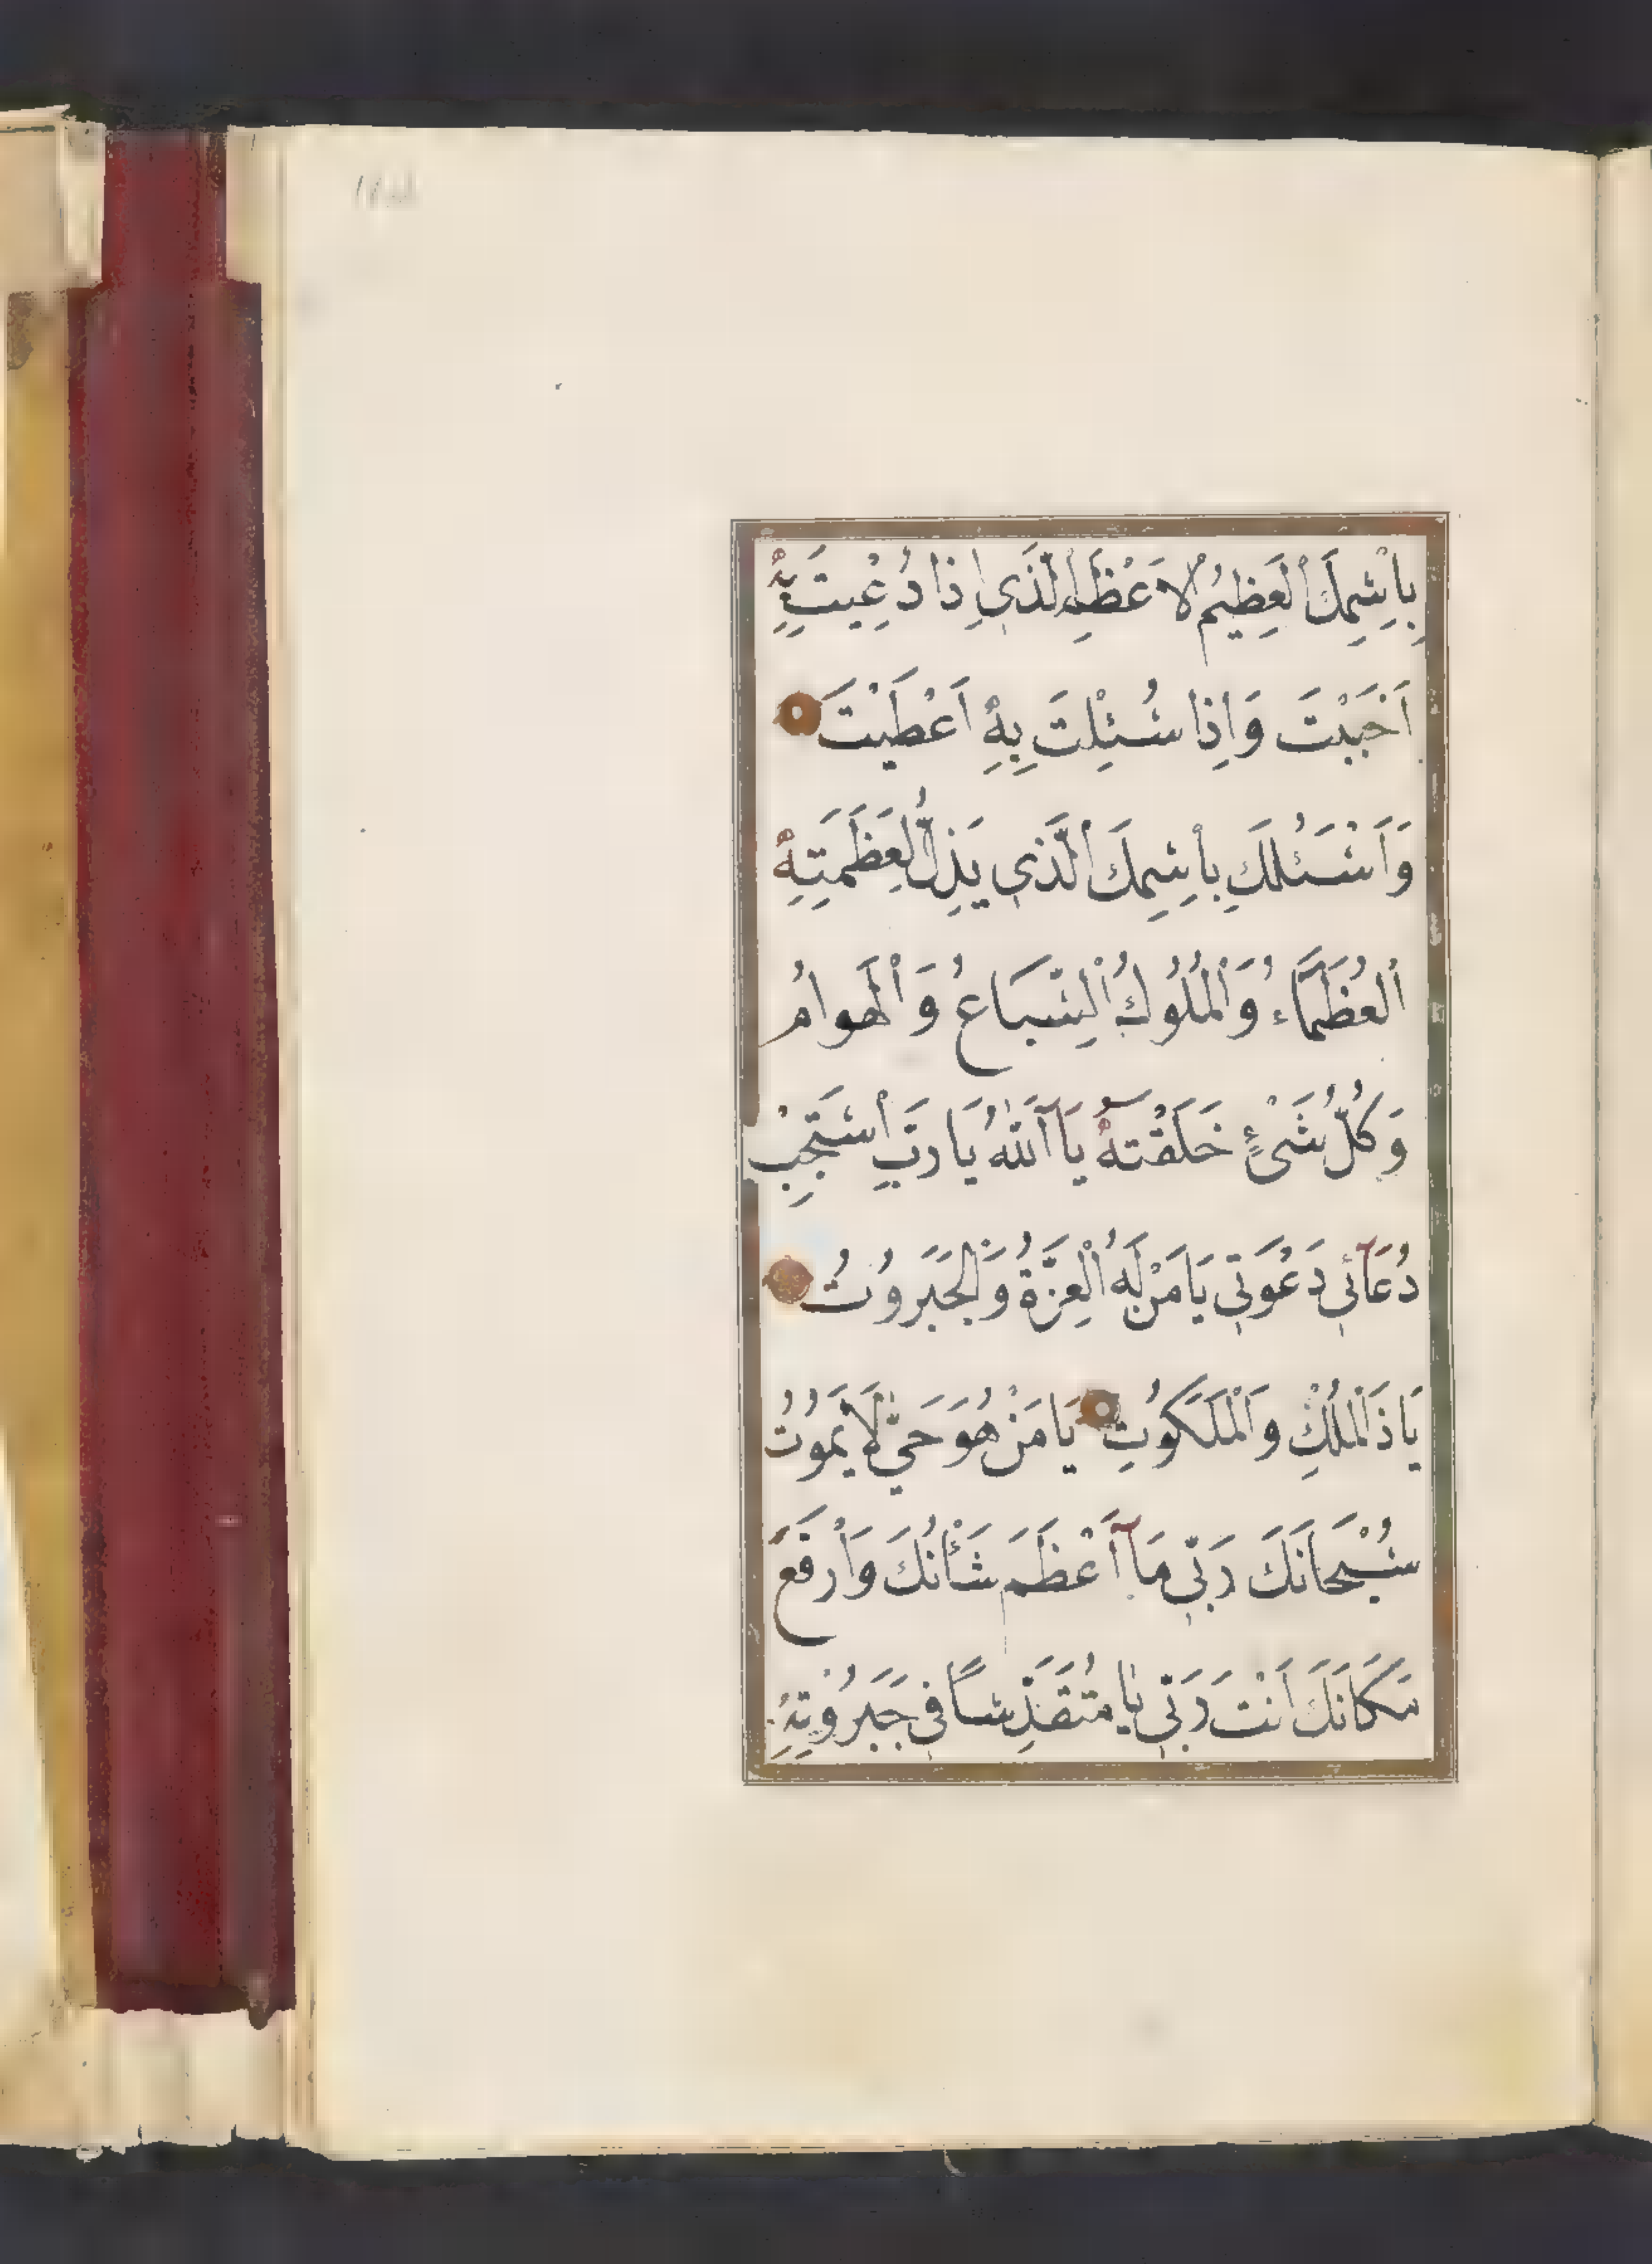 بِاسْمِكَ الْعَظِيمِ الْاَعْظَمِ الَّذَي اِذَا دُعِيتَ بِهِ
اَجَبْتَ وَاِذَا سُئِلْتَ بِهِ اَعْطَيْتَ
وَاَسْئَلُكَ بِاسْمِكَ الَّذي يَذِلُّ لِعَظَمَتِهِ
الْعُظَمَّاءُ وَالْمُلُوكُ الْسِّبَاعُ وَالْهَوامُ
وَكُلُّ شَىْءٍ خَلَقْتَهُ يَا اَللهُ يَا رَبِّ اسْتَجِبْ
دُعَآئي دَعْوَتي يَا مَنْ لَهُ الْعِزَّةُ وَالْجَبَرُوتُ
يَا ذَالْمُلْكِ وَالْمَلَكُوتِ يَا مَنْ هُوَ حَيٌّ لَا يَمُوتُ
سُبْحَانَكَ رَبّي مَآ اَعْظَمَ شَأْنُكَ وَاَرْفَعَ
مَكَانَكَ اَنْتَ رَبّي يَا مُتَقَدِّسًا في جَبَرُوتِهِ